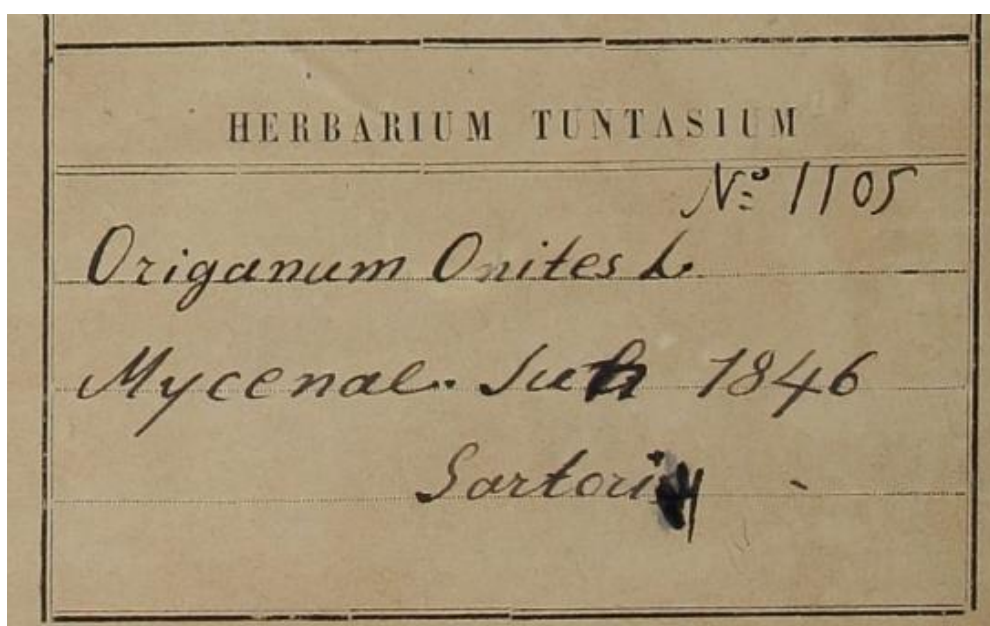 HERBARIUM TUNTASIUM
Nº 1105
Origanum Onites L.
Mycenae. 1846